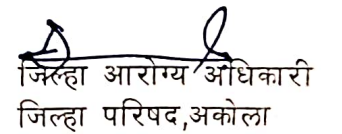 जिल्हा आरोग्य अधिकारी
जिल्हा परिषद,अकोला